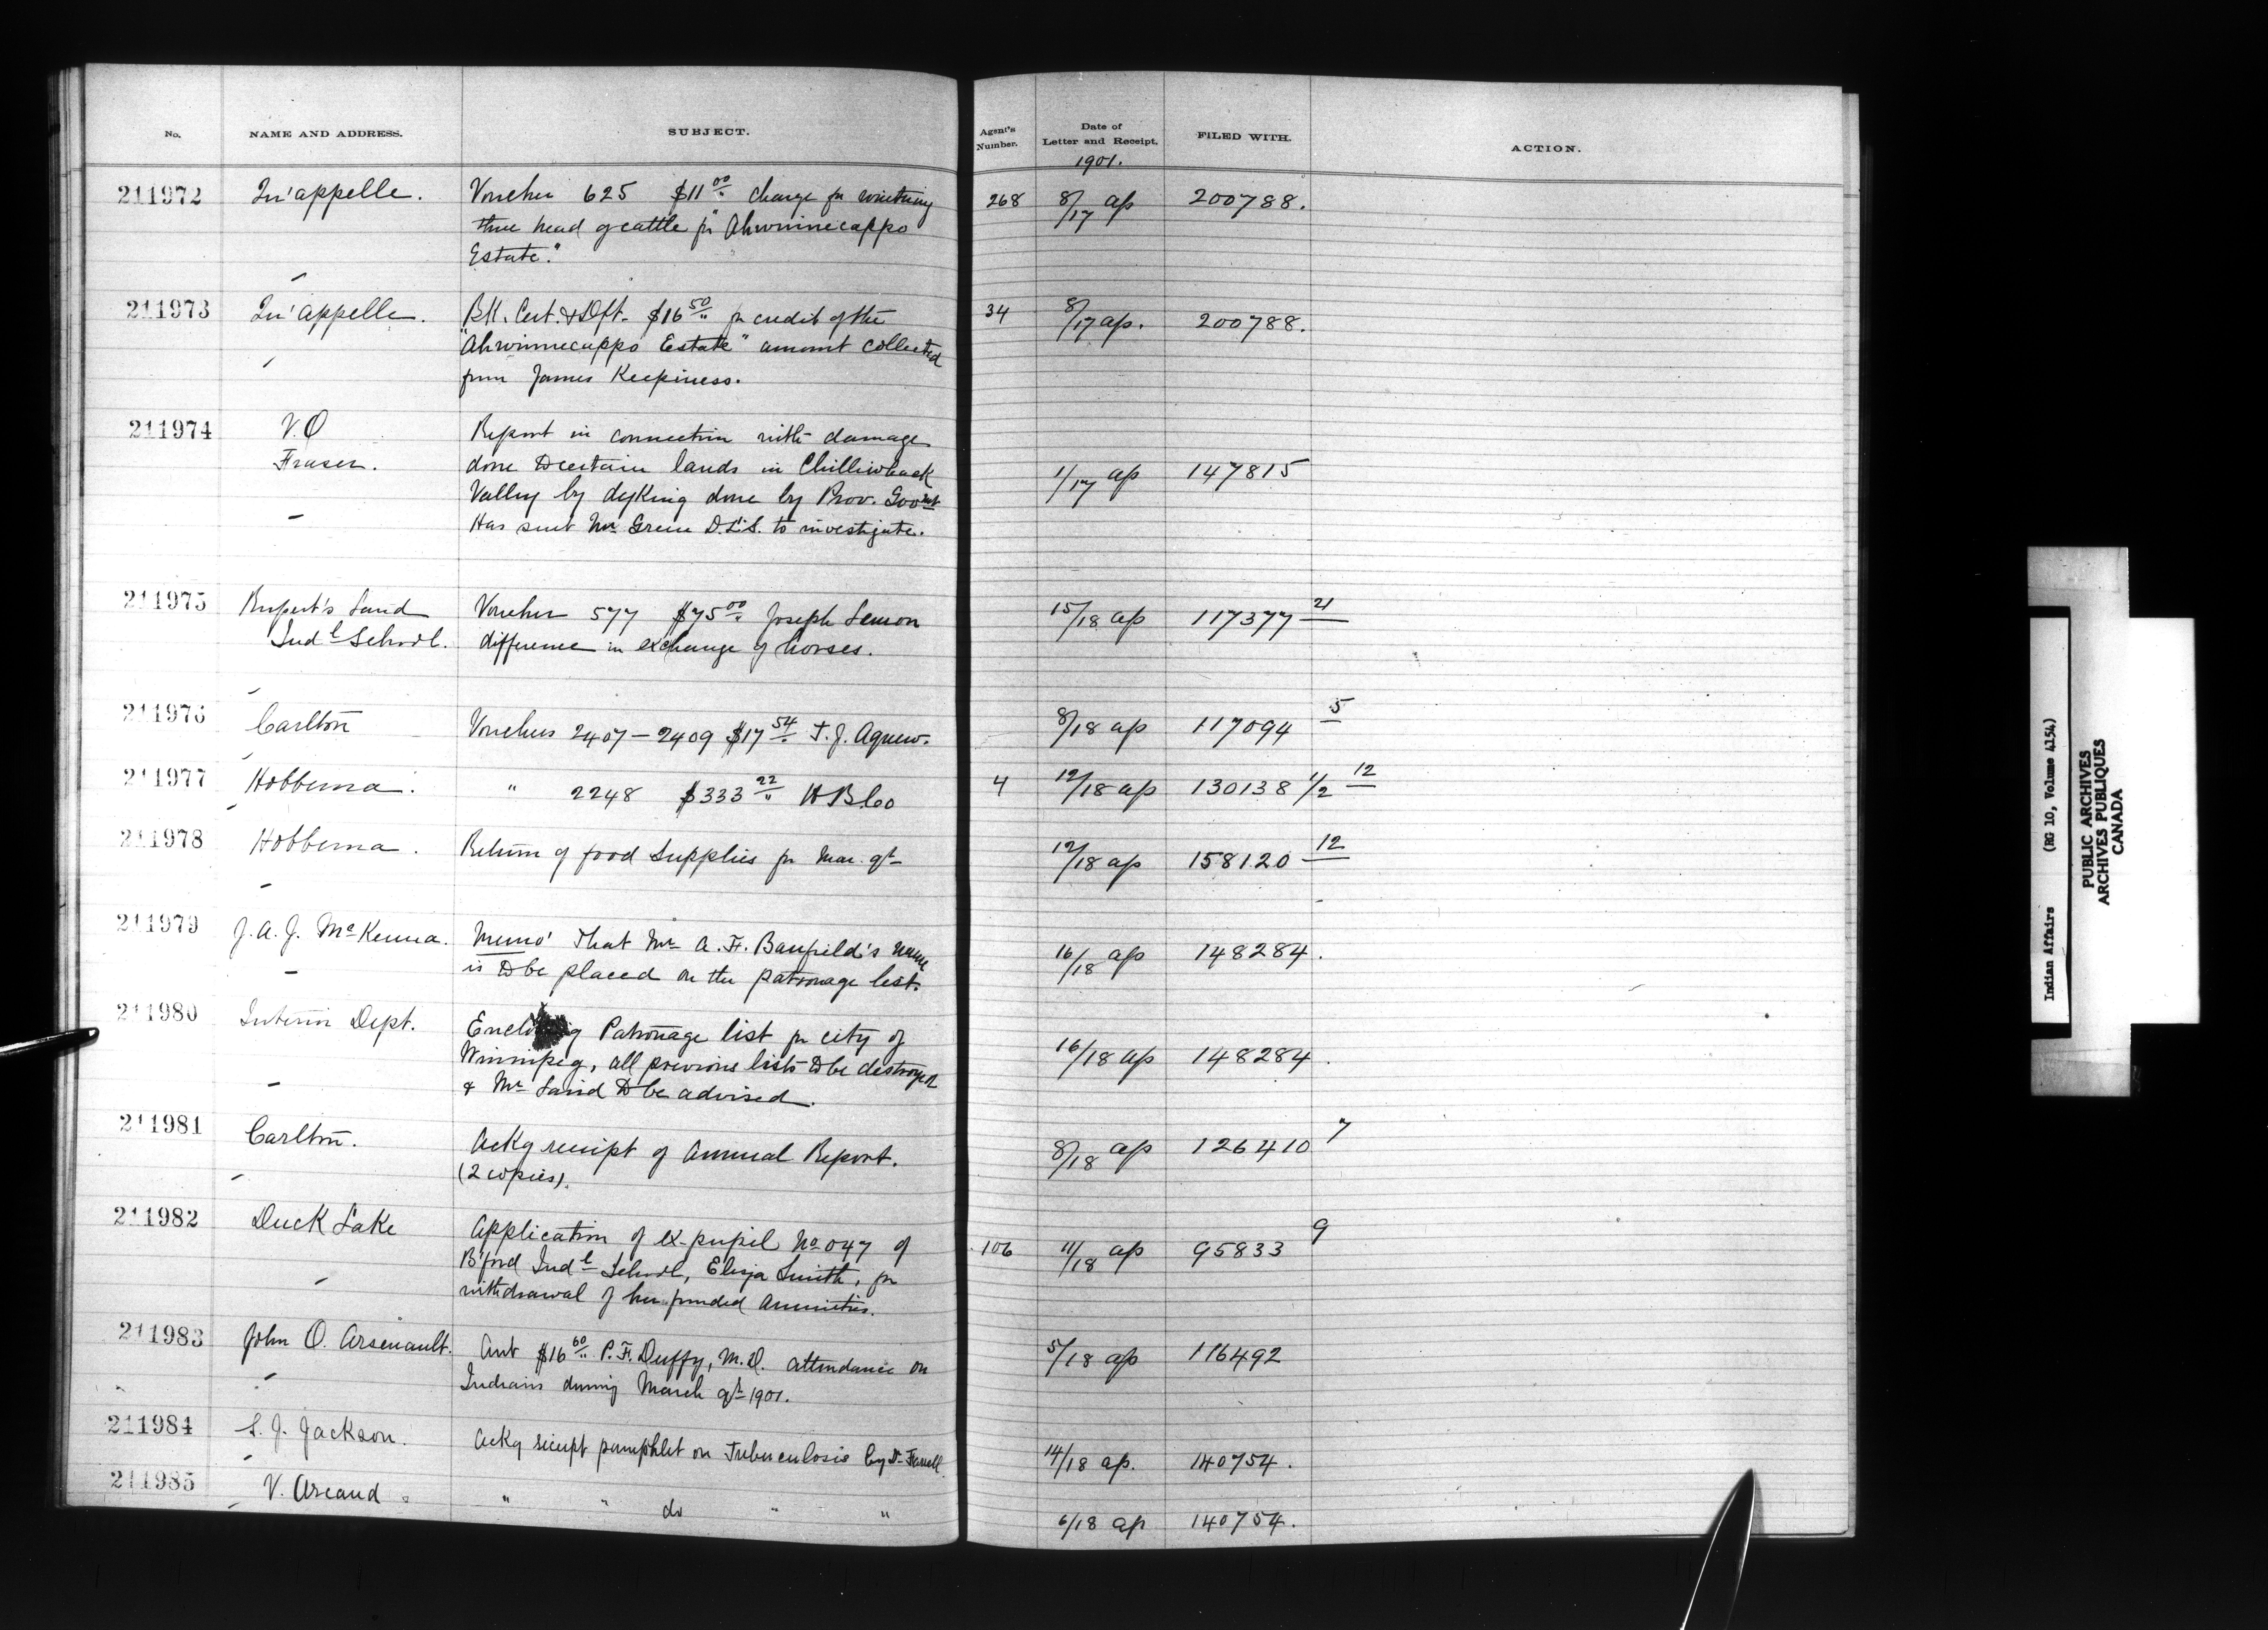 No. NAME AND ADDRESS. SUBJECT. Agent's Number. Date of Letter and Receipt. FILED WITH. ACTION.
1901.
211972 Qu'appelle. Voucher 625 $11 00 charge for wintering 268 8/17 ap 200788.
three head of cattle for "Ahwinnecappo
Estate."
211973 Qu'appelle. BK. Cert. & Dft. $16 50 for credit of the 34 8/17 ap. 200788.
"Ahwinnecappo Estate" amount collected
from James Keepiness.
211974 V.O Report in connection with damage
Fraser. done to certain lands in Chilliwhack 1/17 ap 147815
Valley by dyking done by Prov. Govmt
Has sent Mr Green D.L.S. to investigate.
211975 Rupert's Land Voucher 577 $75 00 Joseph Lemon 15/18 ap 117377 21
Indl School. difference in exchange of horses.
211976 Carlton Vouchers 2407 - 2409 $17 54 T. J. Agnew. 8/18 ap 117094 5
211977 Hobbema. " 2248 $333 22 H B Co 4 12/18 ap 130138 1/2 12
211978 Hobbema. Return of food Supplies for Mar. qt 12/18 ap 158120 12
211979 J. A. J. McKenna. Memo' that Mr A. F. Banfield's name 16/18 ap 148284.
is to be placed on the patronage list.
211980 Interior Dept. Enclosing Patronage list for city of
Winnipeg, all previous lists to be destroyed 16/18 ap 148284.
& Mr Laird to be advised.
211981 Carlton. Ackg receipt of Annual Report. 8/18 ap 126410 7
(2 copies).
211982 Duck Lake Application of ex-pupil No 047 of 106 11/18 ap 95833 9
B'ford Indl School, Eliza Smith, for
withdrawal of her funded Annuities.
211983 John O. Arsenault. Act $16 60 P. F. Duffy, M.D. attendance on 5/18 ap 116492
Indians during March qt 1901.
211984 S. J. Jackson. Ackg receipt pamphlet on Tuberculosis by Dr Farrell. 14/18 ap. 140754.
211985 V. Arcand. " " do " " 6/18 ap 140754.
Indian Affairs (RG 10, Volume 4154)
PUBLIC ARCHIVES
ARCHIVES PUBLIQUES
CANADA